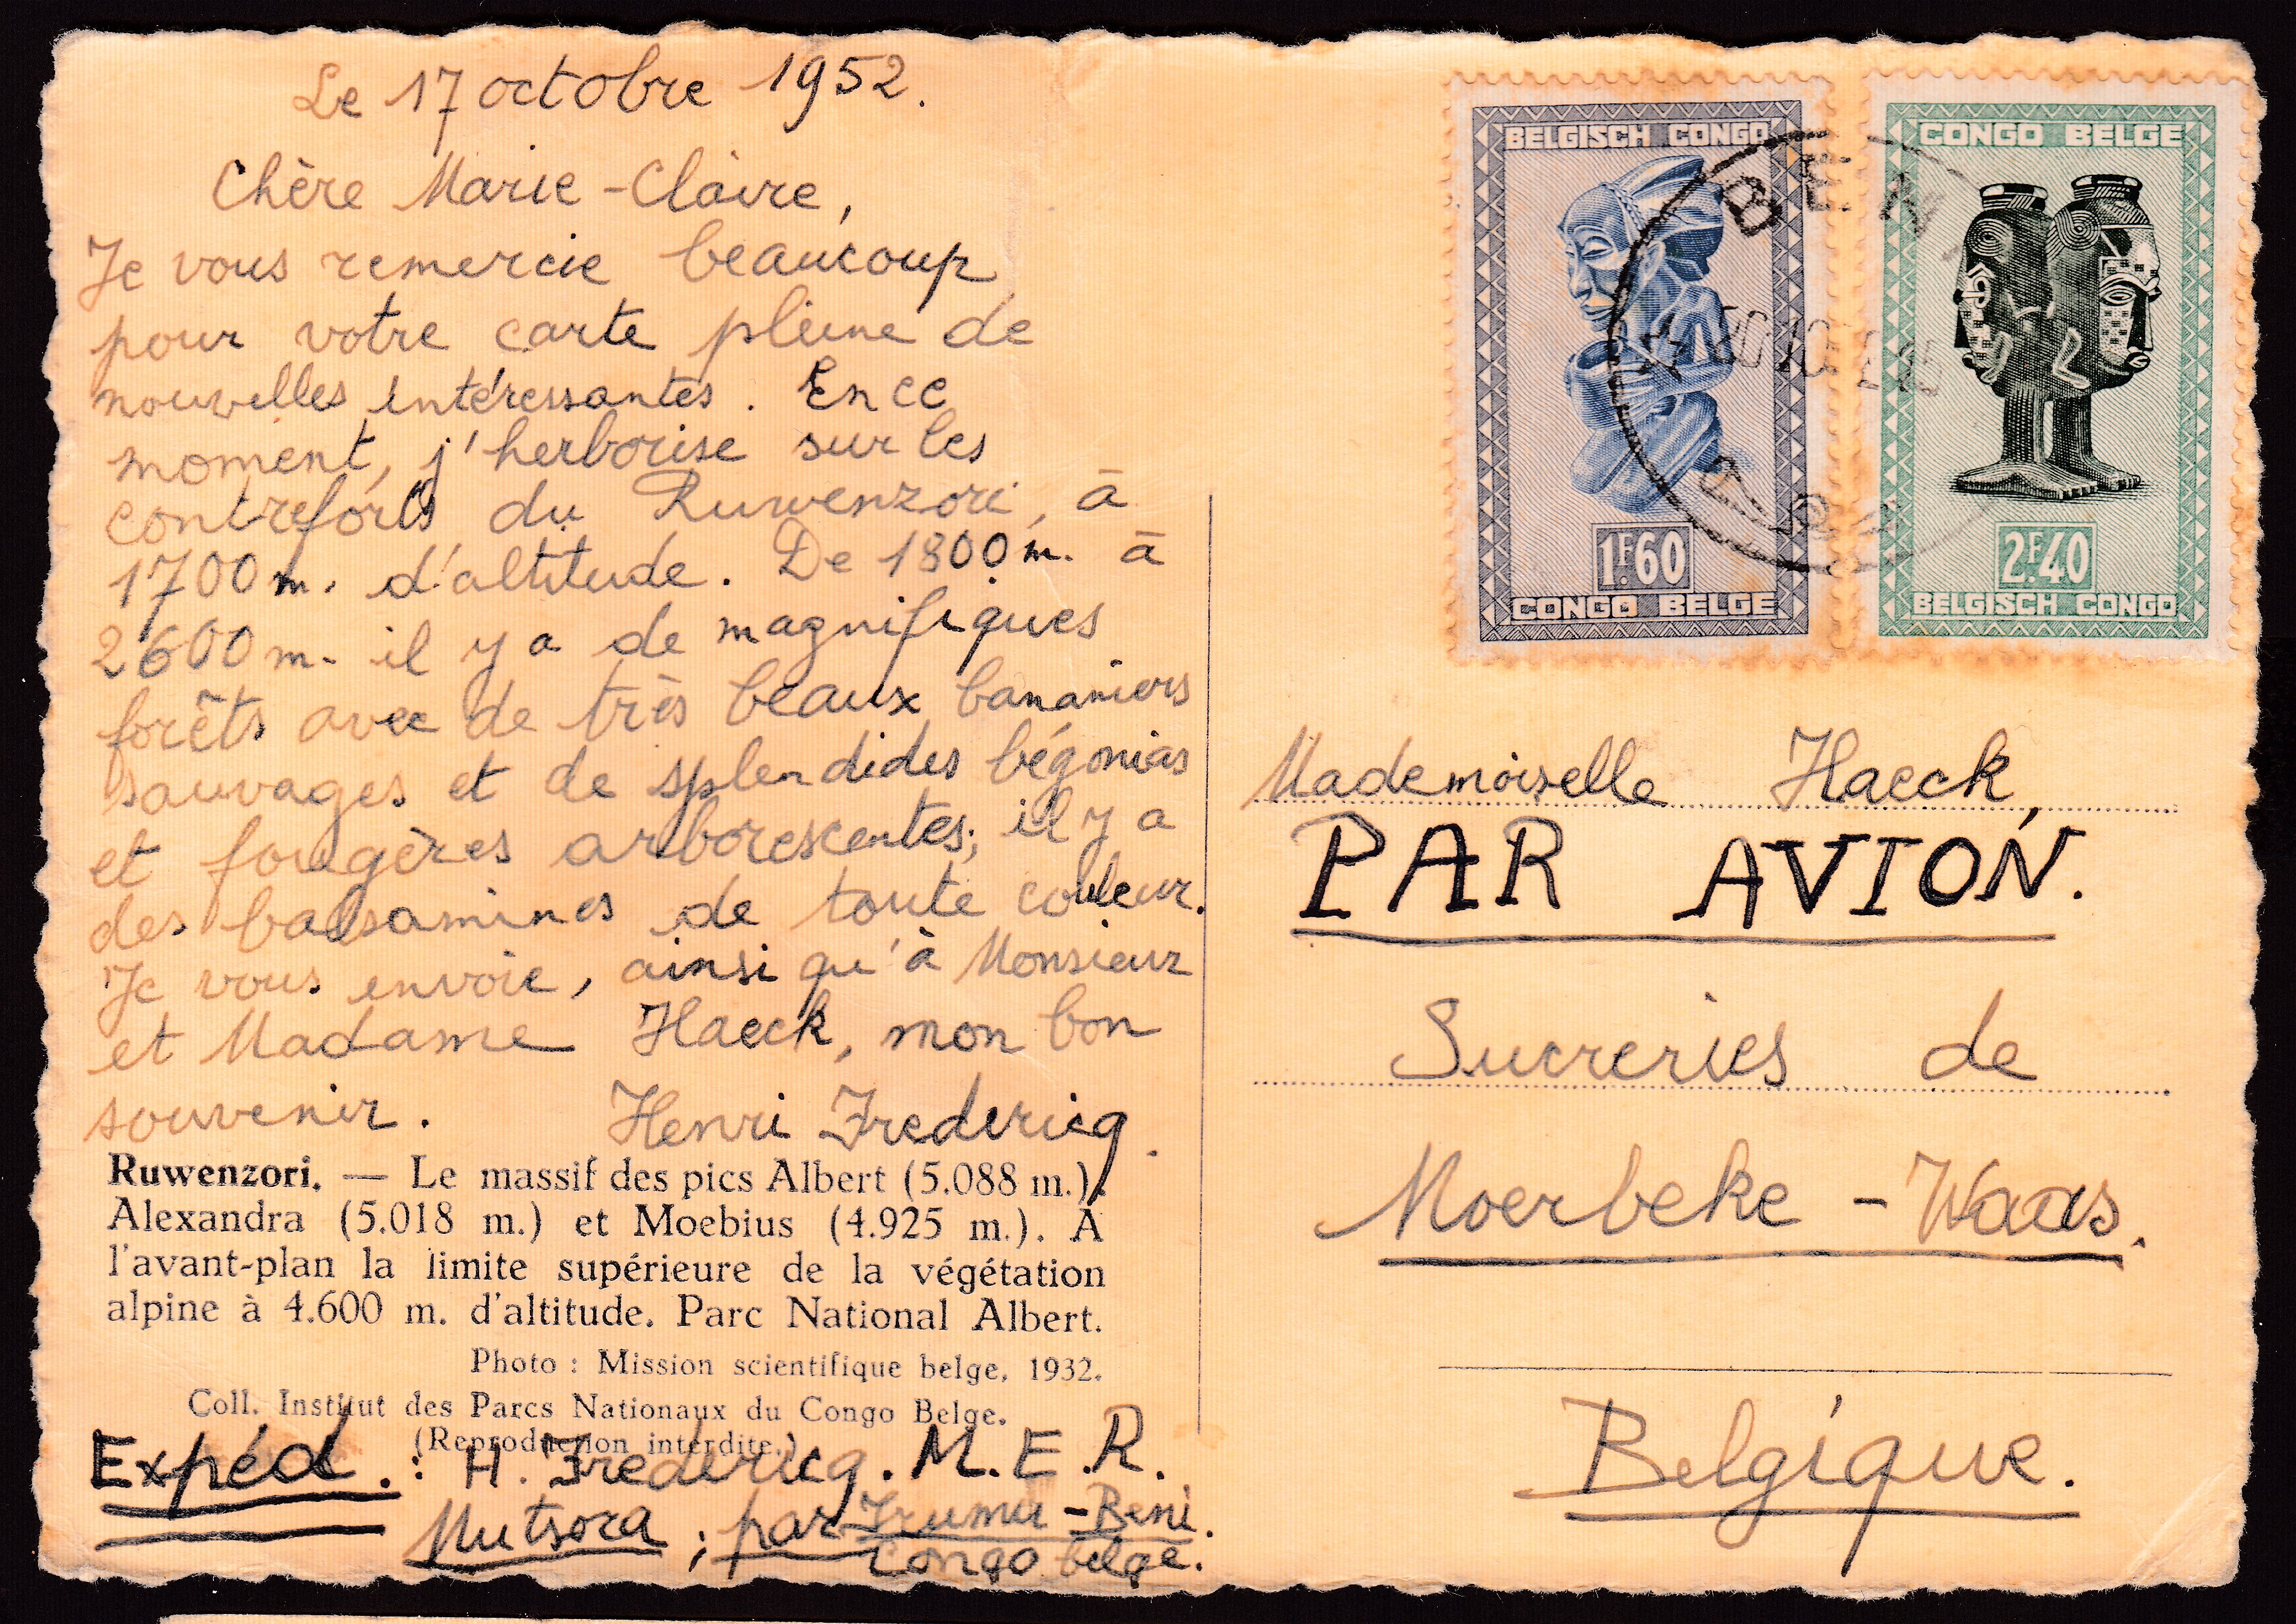 Le 17 octobre 1952.
Chère Marie-Claire,
Je vous remercie beaucoup
pour votre carte pleine de
nouvelles intéressantes. En ce
moment, j'herborise sur les
contreforts du Ruwenzori, à
1700 m. d'altitude. De 1800 m. à
2600 m. il y a de magnifiques
forêts avec de très beaux bananiers
sauvages et de splendides bégonias
et fougères arborescentes; il y a
des balsamines de toute couleur.
Je vous envoie, ainsi qu'à Monsieur
et Madame Haeck, mon bon
souvenir. Henri Fredericq.
Ruwenzori. — Le massif des pics Albert (5.088 m.),
Alexandra (5.018 m.) et Moebius (4.925 m.). A
l'avant-plan la limite supérieure de la végétation
alpine à 4.600 m. d'altitude. Parc National Albert.
Photo : Mission scientifique belge, 1932.
Coll. Institut des Parcs Nationaux du Congo Belge.
(Reproduction interdite.)
Expéd. : H. Fredericq. M.E.R.
Mutsora ; par Irumu - Beni.
Congo belge.
BELGISCH CONGO
1F.60
CONGO BELGE
CONGO BELGE
2F.40
BELGISCH CONGO
BENI
Mademoiselle Haeck,
PAR AVION.
Sucreries de
Moerbeke - Waas.
Belgique.